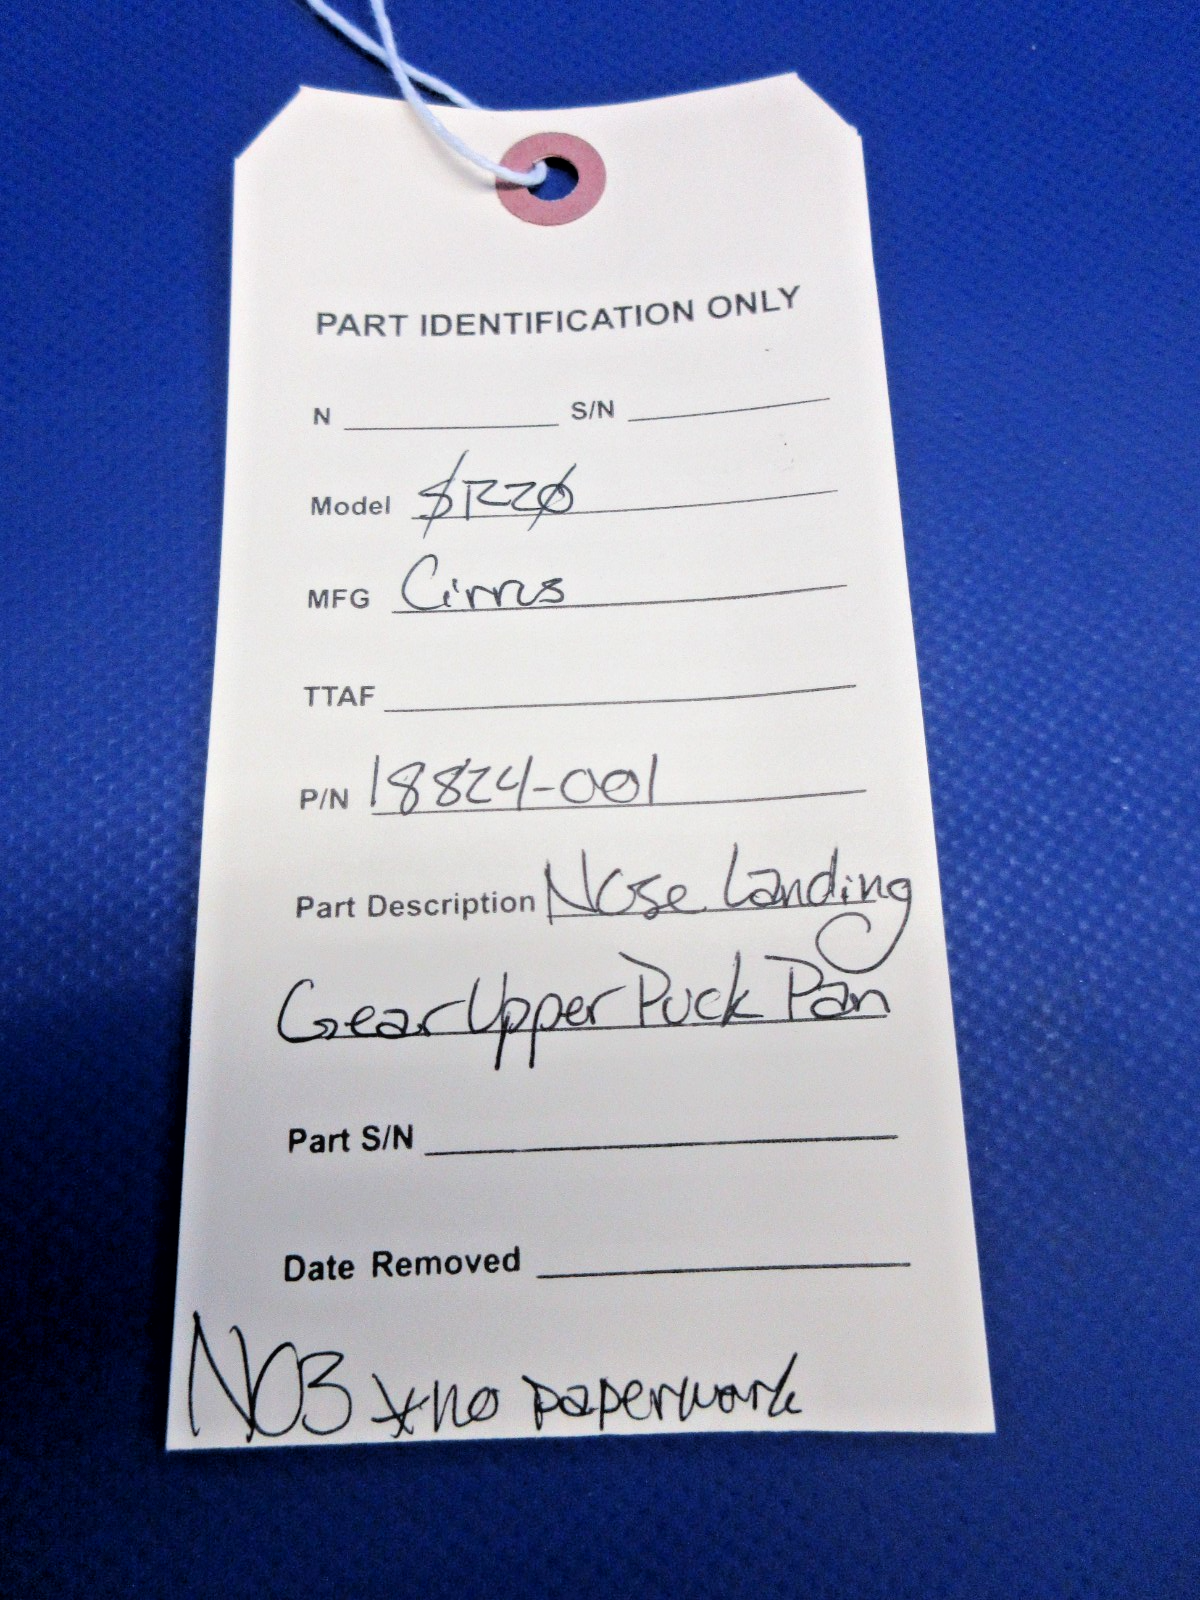 PART IDENTIFICATION ONLY
N S/N
Model SR220
MFG Cirrus
TTAF
P/N 18824-001
Part Description Nose Landing
Gear Upper Puck Pan
Part S/N
Date Removed
NO3 *no paperwork